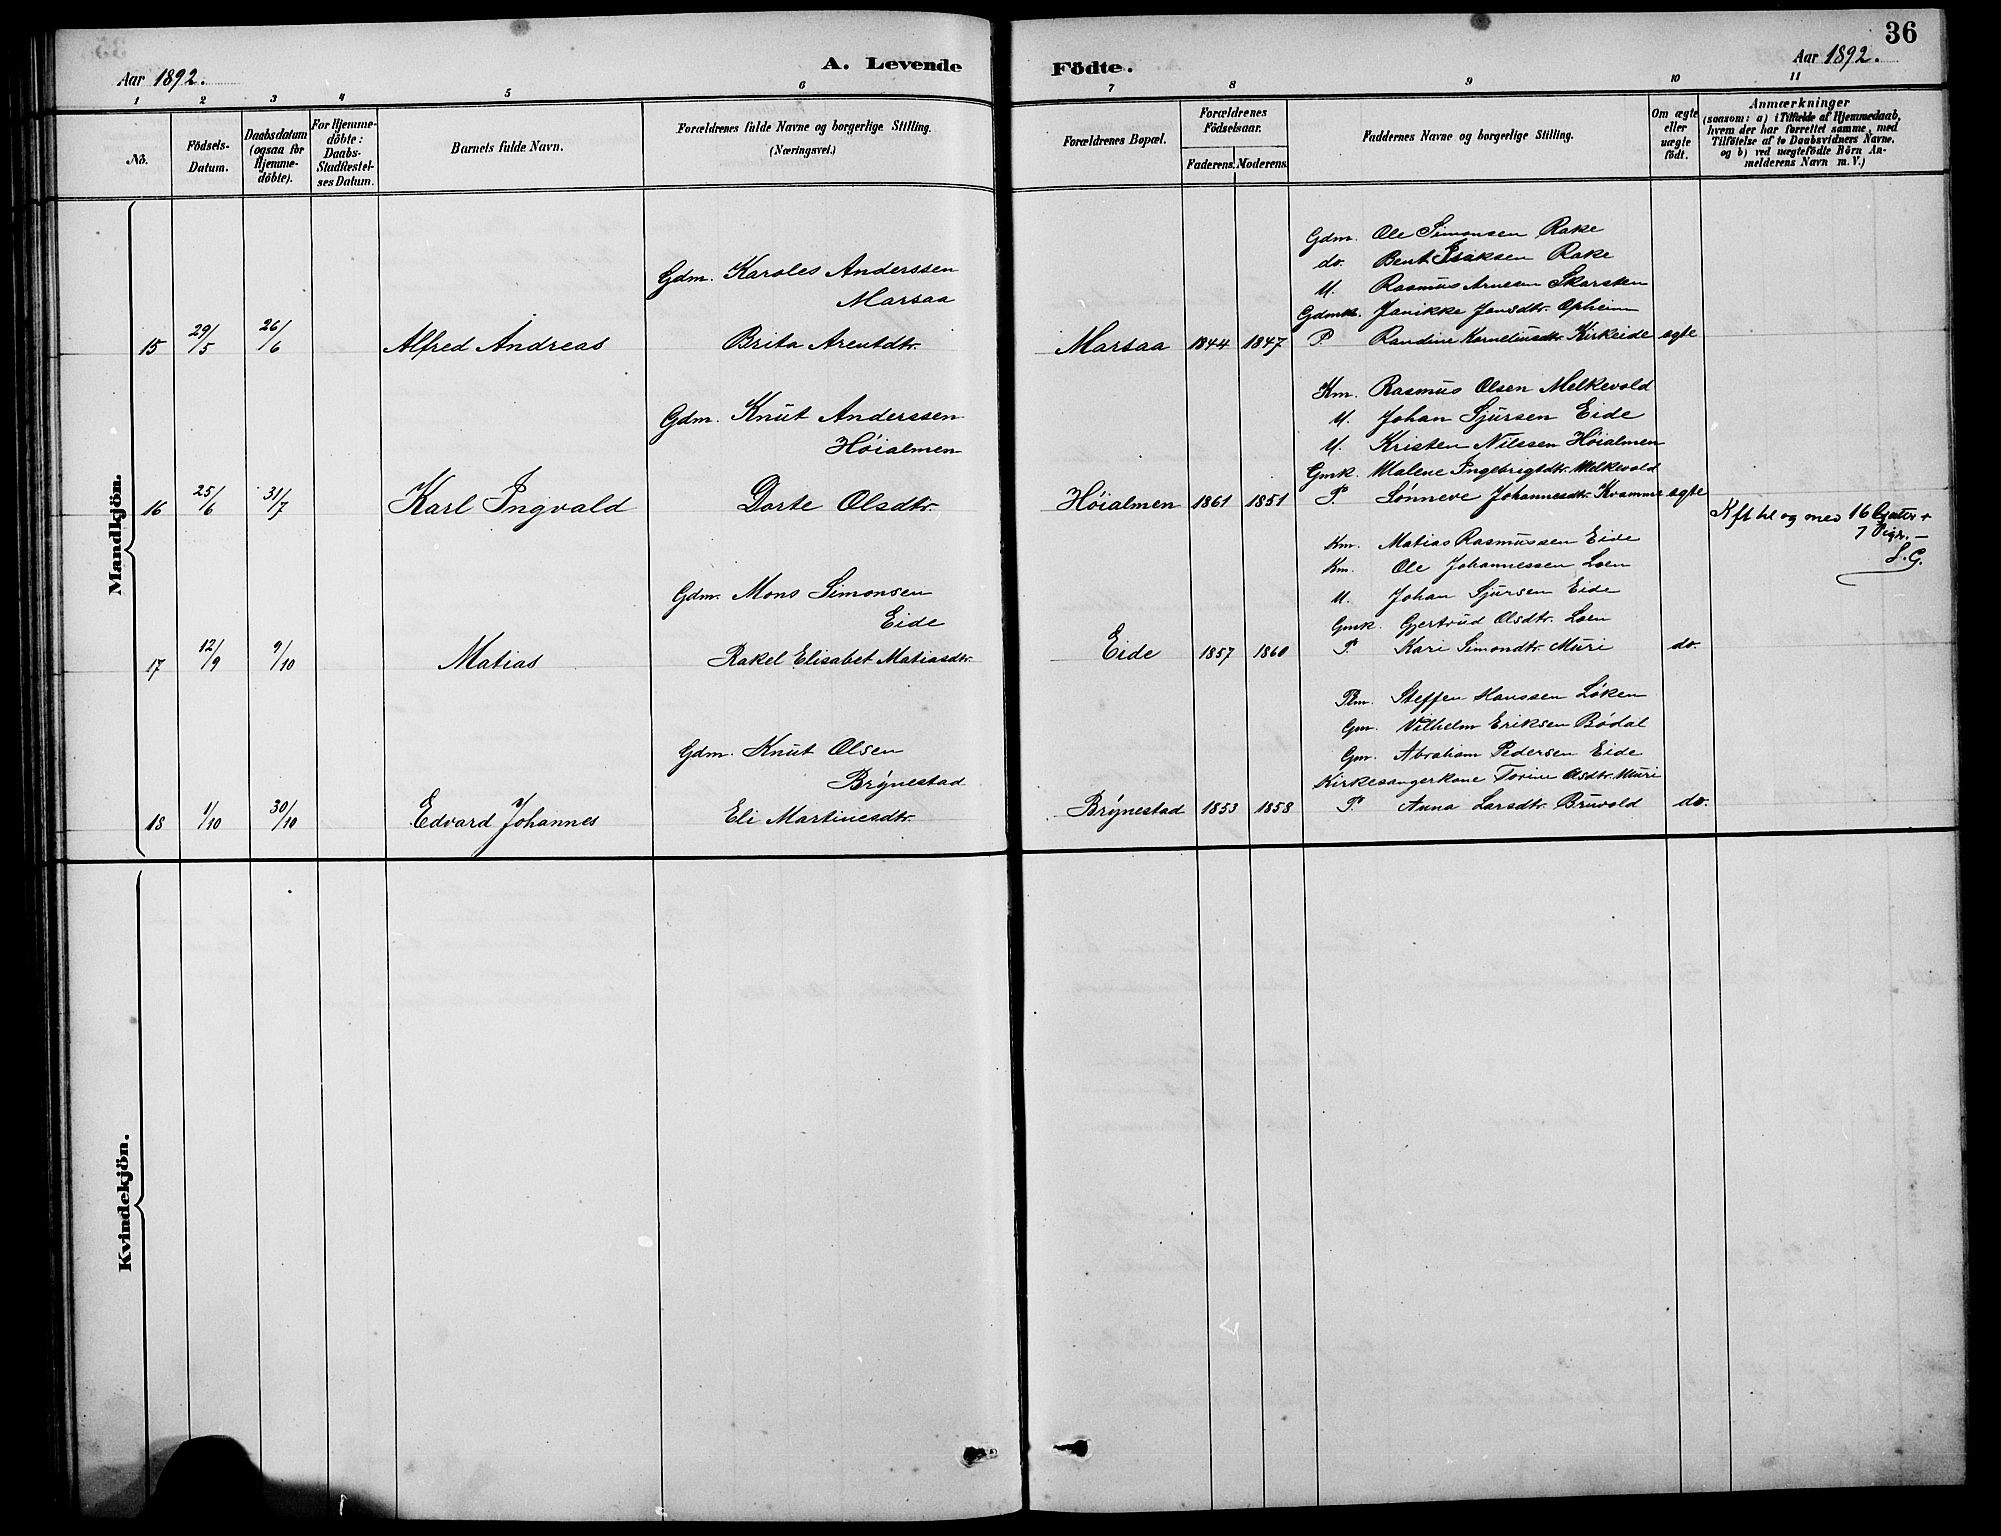 36
Aar 1892. A. Levende Födte. Aar 1892.
1 2 3 4 5 6 7 8 9 10 11
No. Födsels-Datum. Daabsdatum (ogsaa for Hjemme-döbte). For Hjemme-döbte: Daabs-Stadfæstel-ses Datum. Barnets fulde Navn. Forældrenes fulde Navne og borgerlige Stilling. (Næringsvei.) Forældrenes Bopæl. Forældrenes Födselsaar. Faderens. Moderens. Faddernes Navne og borgerlige Stilling. Om ægte eller uægte födt. Anmærkninger (saasom: a) i Tilfælde af Hjemmedaab, hvem der har forrettet samme, med Tilföielse af to Daabsvidners Navne, og b) ved uægtefödte Börn An-melderens Navn m. V.)
Mandkjön.
Gdm. Ole Simonsen Rake
do. Bent Isaksen Rake
Gdm. Karoles Anderssen
U. Rasmus Arnesen Skarsten
Marsaa
Gdmk. Janikke Jonsdtr. Opheim
15 29/5 26/6 Alfred Andreas Brita Arentdtr. Marsaa 1844 1847 P. Randine Korneliusdtr. Kirkeide ægte
Km. Rasmus Olsen Melkevold
Gdm. Knut Anderssen
U. Johan Sjursen Eide
Høialmen
U. Kristen Nilssen Høialmen
Gmk. Malene Ingebrigtdtr. Melkevold
16 25/6 31/7 Karl Ingvald Dorte Olsdtr. Høialmen 1861 1851 P. Sønneve Johannesdtr. Kvamme ægte
Kft til og med 16 Gutter +
7 Piger. —
S. G.
Km. Matias Rasmussen Eide
Km. Ole Johannessen Loen
Gdm. Mons Simonsen
U. Johan Sjursen Eide
Eide
Gmk. Gjertrud Olsdtr. Loen
17 12/9 9/10 Matias Rakel Elisabet Matiasdtr. Eide 1857 1860 P. Kari Simondtr. Muri do.
Plm. Steffen Hanssen Løken
Gm. Vilhelm Eriksen Bødal
Gdm. Knut Olsen
Gm. Abraham Pedersen Eide
Brynestad
Kirkesangerkone Torine Olsdtr. Muri
18 1/10 30/10 Edvard Johannes Eli Martinusdtr. Brynestad 1853 1858 P. Anna Larsdtr. Bruvold do.
Kvindekjön.